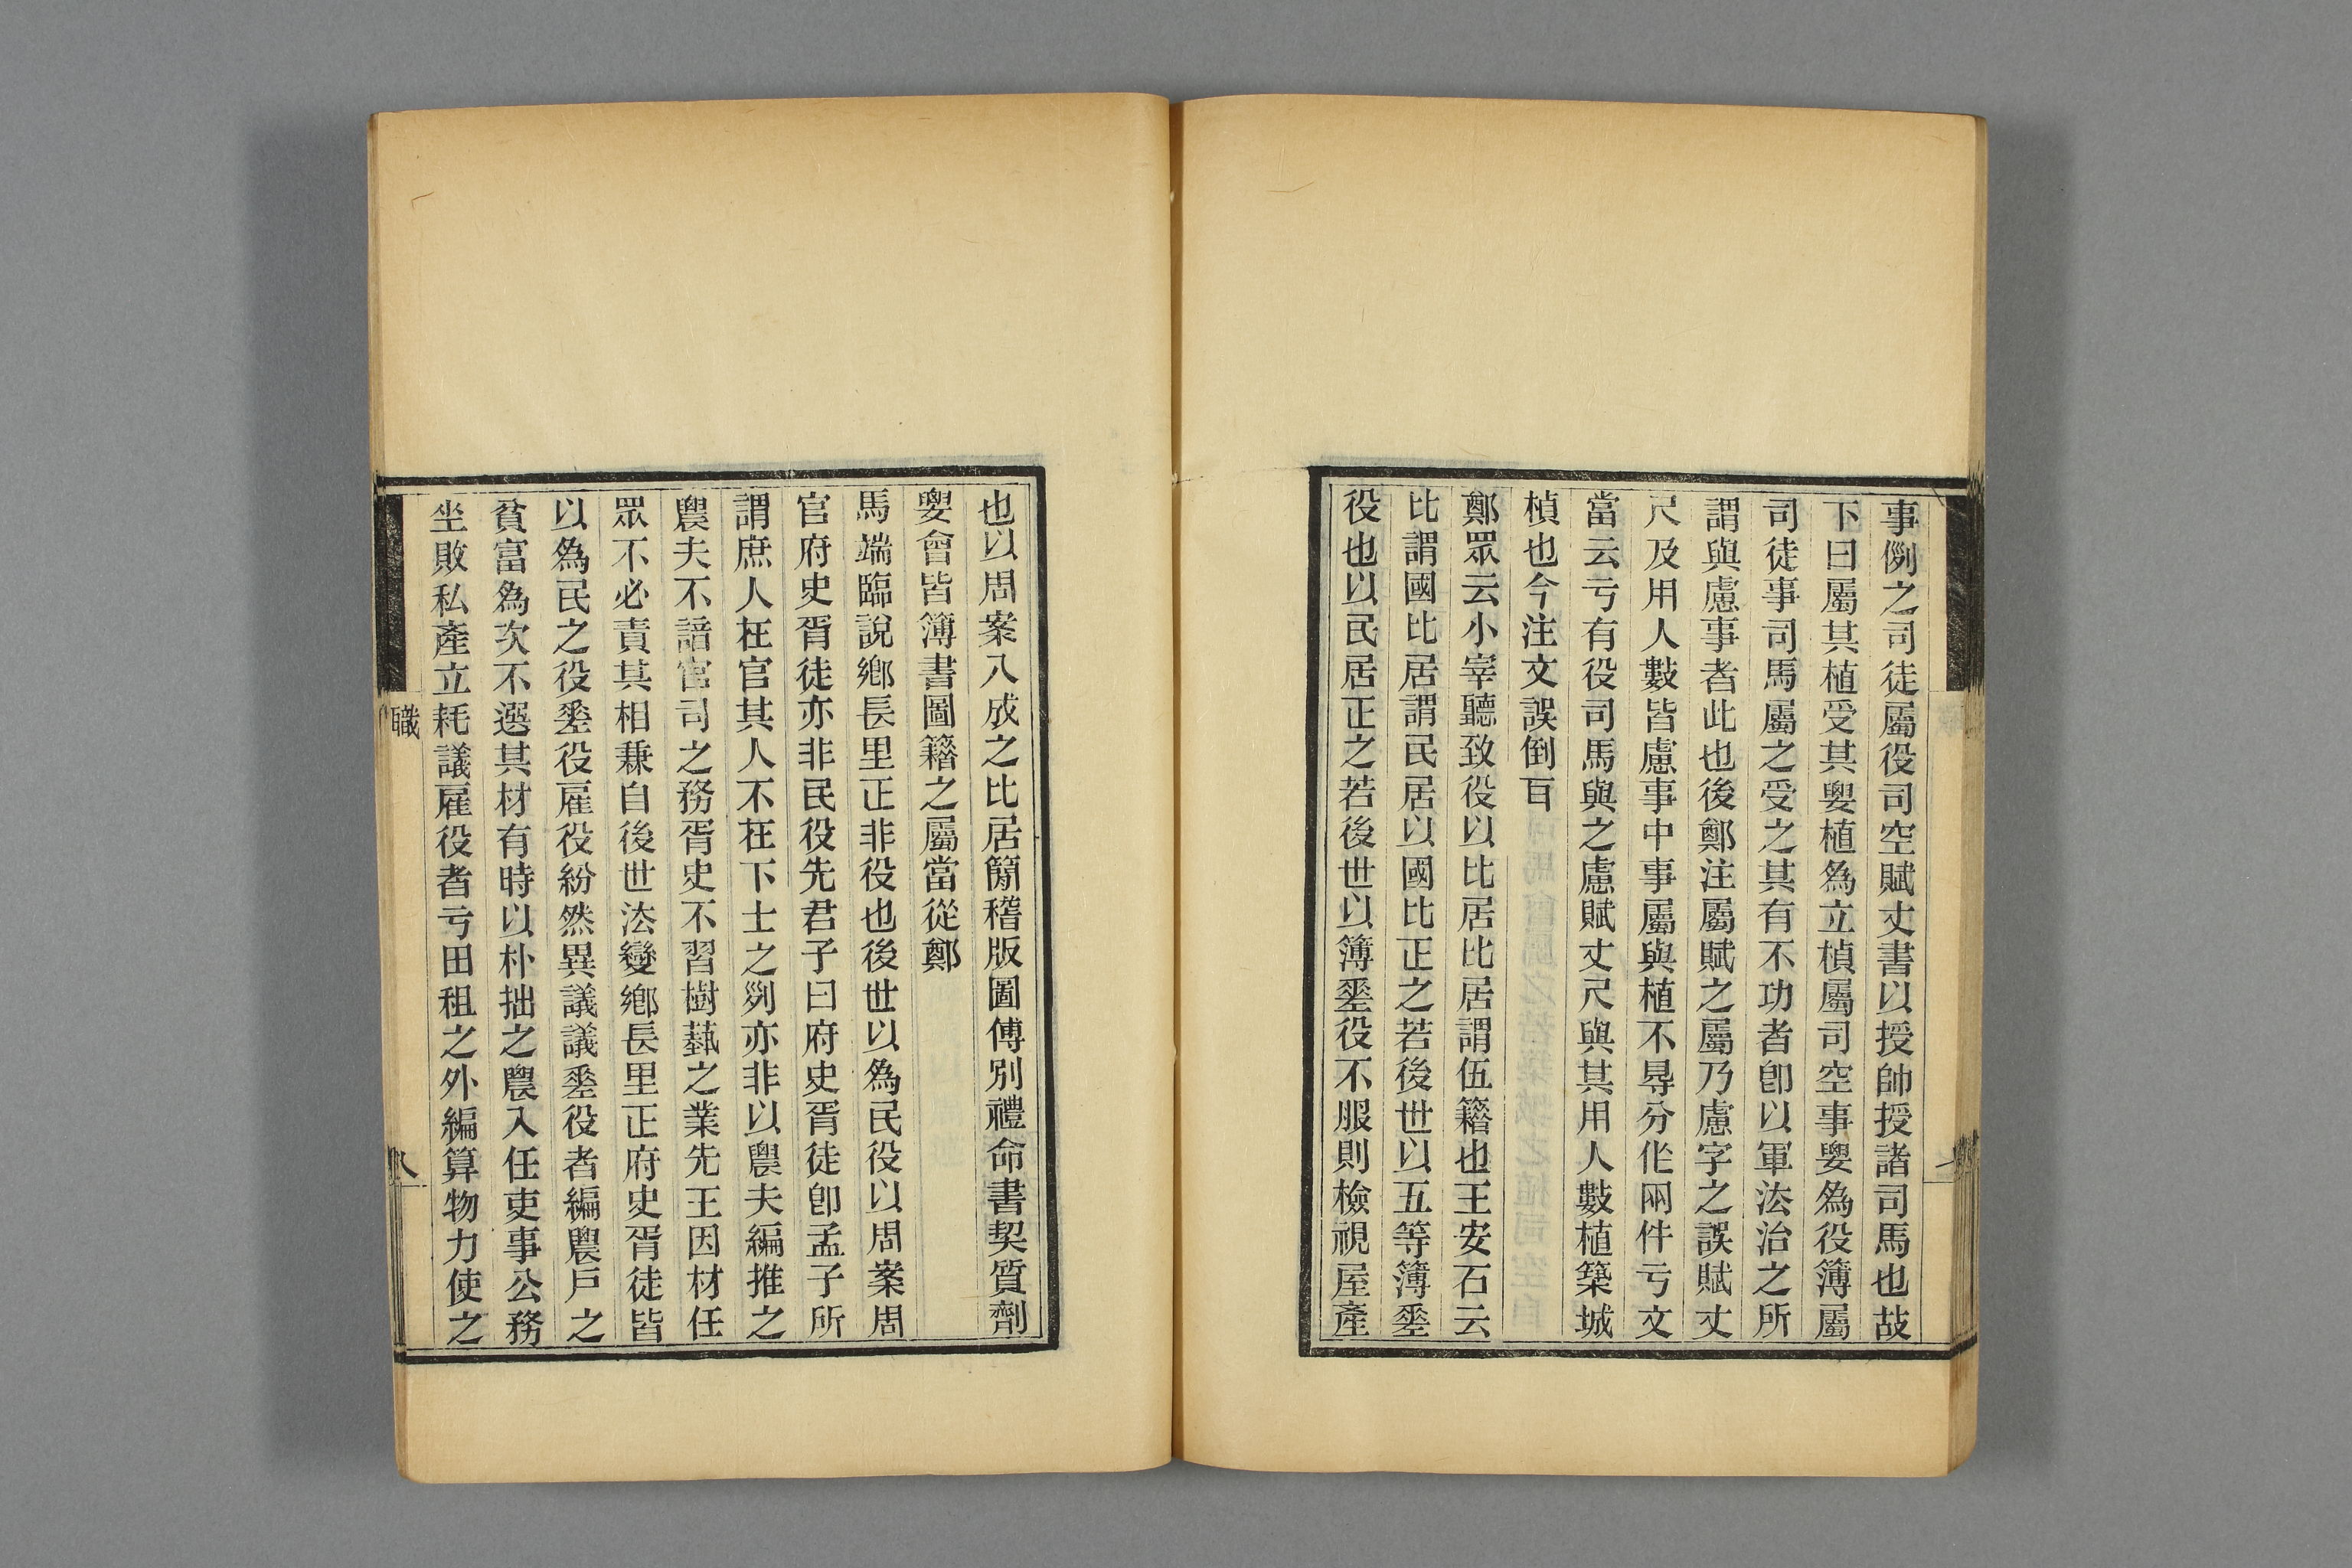 事例之司徒屬役司空賦丈書以授帥授諸司馬也故
下曰屬其植受其要植為立楨屬司空事要為役簿屬
司徒事司馬屬之受之其有不功者卽以軍法治之所
謂與慮事者此也後鄭注屬賦之屬乃慮字之誤賦丈
尺及用人數皆慮事中事屬與植不㝵分作兩件亏文
當云亏有役司馬與之慮賦丈尺與其用人數植築城
楨也今注文誤倒耳
鄭眾云小宰聽致役以比居比居謂伍籍也王安石云
比謂國比居謂民居以國比正之若後世以五等簿𡍮
役也以民居正之若後世以簿𡍮役不服則檢視屋產
也以周案八成之比居簡稽版圖傅別禮命書契質劑
要會皆簿書圖籍之屬當從鄭
馬端臨說鄉長里正非役也後世以為民役以周案周
官府史胥徒亦非民役先君子曰府史胥徒卽孟子所
謂庶人在官其人不在下士之列亦非以農夫編推之
農夫不諳官司之務胥史不習樹蓺之業先王因材任
眾不必責其相兼自後世法變鄉長里正府史胥徒皆
以為民之役𡍮役雇役紛然異議議𡍮役者編農戶之
貧富為次不選其材有時以朴拙之農入任吏事公務
坐敗私產立耗議雇役者亏田租之外編算物力使之
職
八